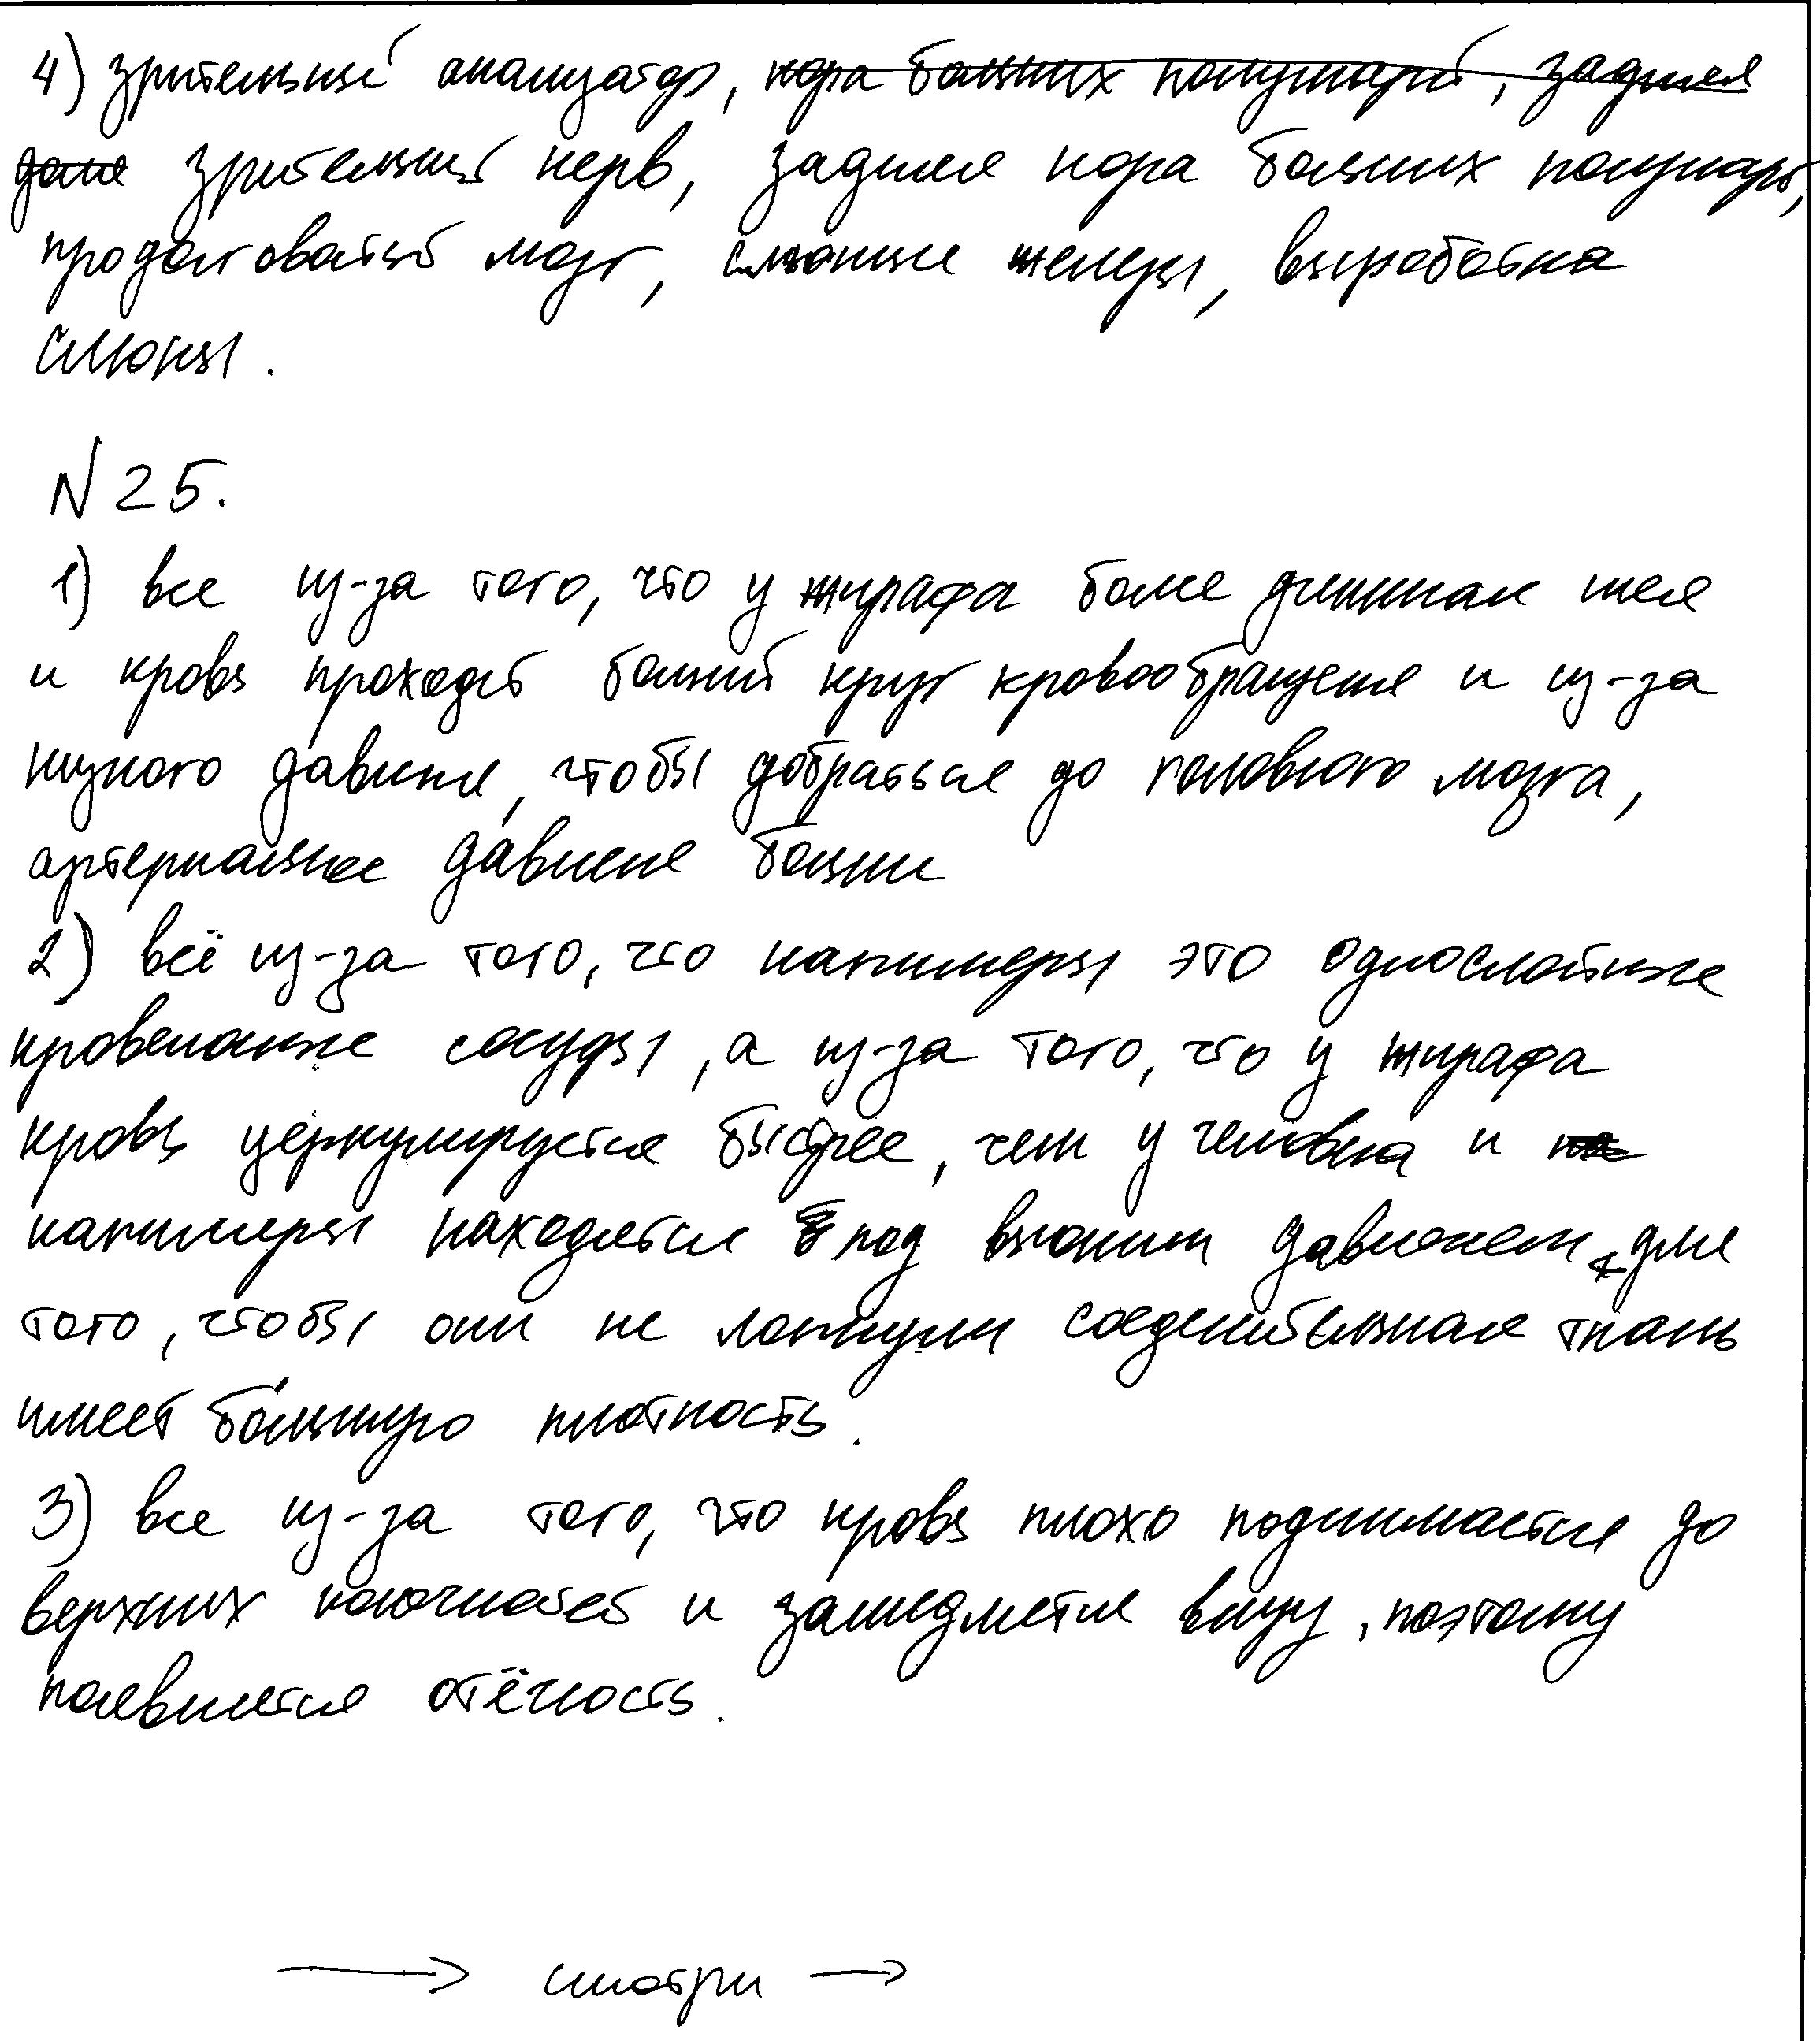 4) зрительный анализатор, кора больших полушарий, задняя
доля зрительный нерв, задняя кора больших полушарий,
продолговатый мозг, слюнные железы, выработка
слюны.
N 25.
1) все из-за того, что у жирафа более длинная шея
и кровь проходит больший круг кровообращения и из-за
нужного давления, чтобы добраться до головного мозга,
артериальное давление больше
2) всё из-за того, что капилляры это однослойные
кровеносные сосуды, а из-за того, что у жирафа
кровь церкулируется быстрее, чем у человека и
капилляры находятся под высоким давлением, для
того, чтобы они не лопнули соеденительная ткань
имеет большую плотность.
3) все из-за того, что кровь плохо поднимается до
верхних конечностей и замедляется внизу, поэтому
появляется отёчность.
→ смотри →